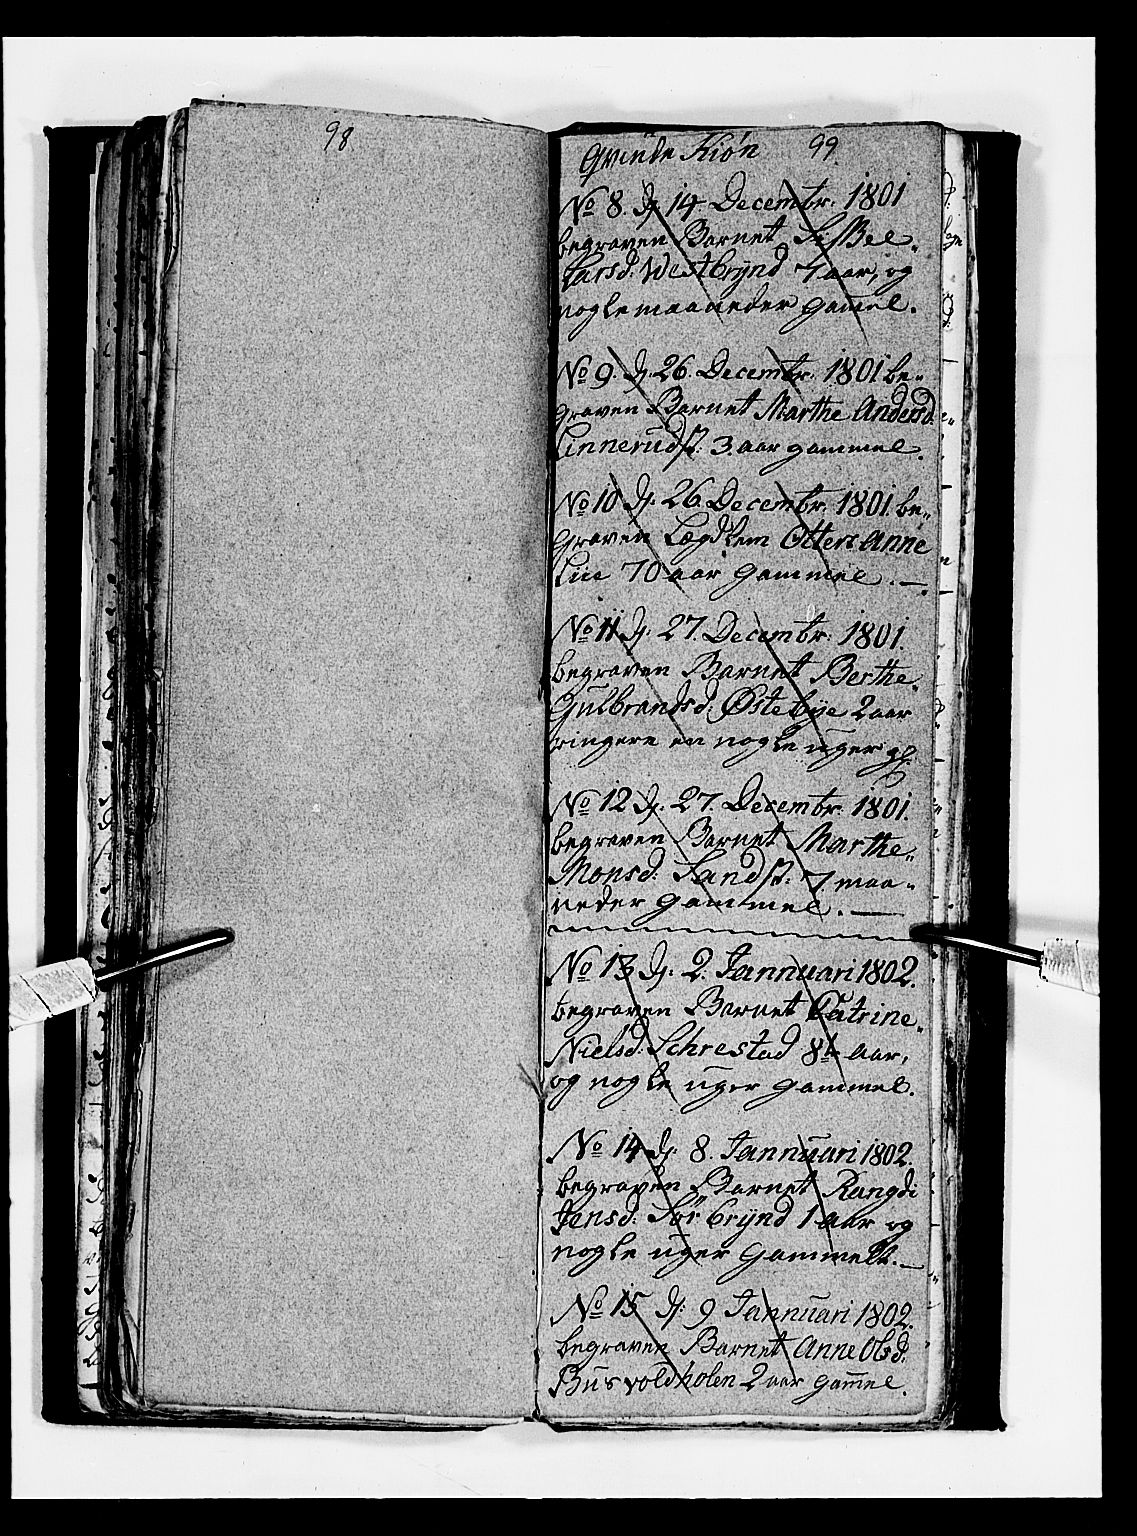 98
Qvinde Kiøn 99
No 8. dj 14 Decembr. 1801
begraven Barnet Sisbel
Larsd: Westbrÿnd 7 aar, og
nogle maaneder gamel.
No 9. dj. 26. Decembr. 1801 be-
graven Barnet Marthe Andersd.
Linnerud 3 aar gammel.
No 10 dj. 26. Decembr. 1801. be-
graven Lægdlem Otters Anne
Lue 70 aar gammel.
No 11 dj. 27. Decembr. 1801.
begraven Barnet Berthe
Gulbrandsd: Østebye 2 aar
ringere en nogle uger gl.
No 12 dj. 27. Decembr. 1801.
begraven Barnet Marthe
Monsd: Sand 7 maa-
neder gammel.
No 13 dj. 2. Jannuari 1802.
begraven Barnet Catrine
Nielsd: Schrestad 8½ aar,
og nogle uger gammel.
No 14 dj. 8. Jannuari 1802.
begraven Barnet Rangdi
Jensd: Sør brÿnd 1 aar og
nogle uger gammel.
No 15 dj: 9 Jannuari 1802.
begraven Barnet Anne Olsd:
Busvoldholen 2 aar gam̄el.